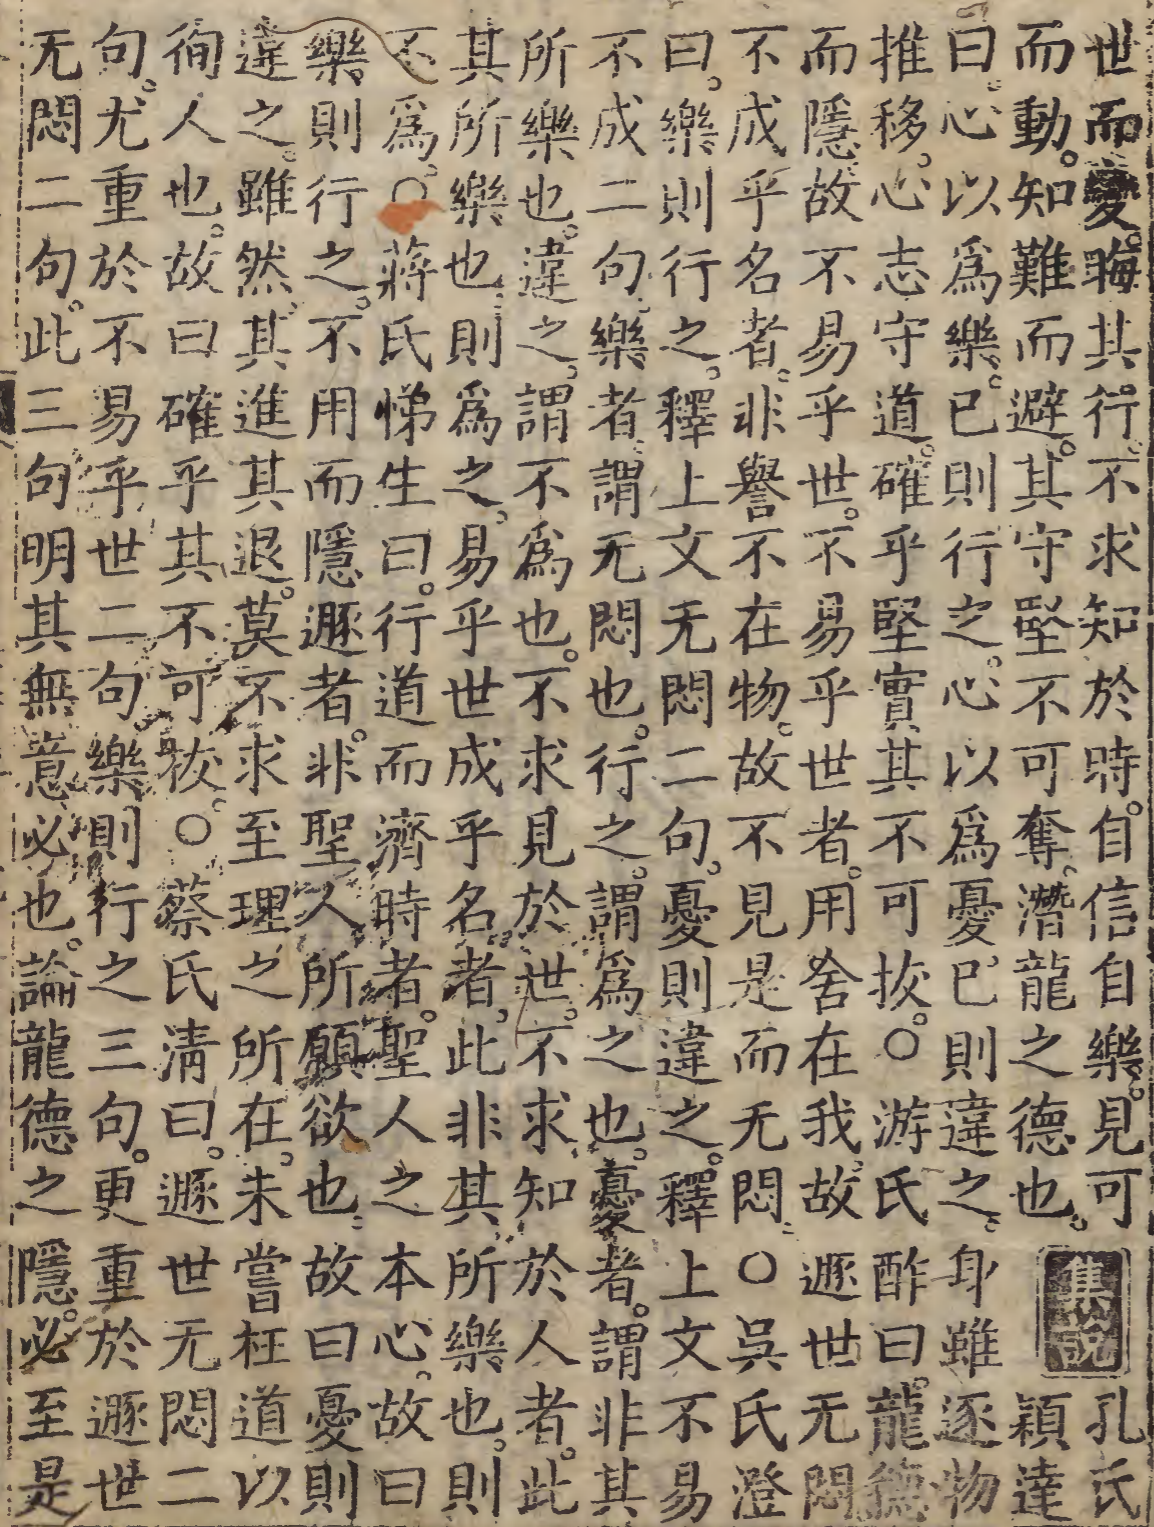 世而變。晦其行。不求知於時。自信自樂。見可
而動。知難而避。其守堅不可奪。潛龍之德也。集說孔氏穎達
曰。心以爲樂。己則行之。心以爲憂。己則違之。身雖逐物
推移。心志守道。確乎堅實其不可拔。○游氏酢曰。龍德
而隱。故不易乎世。不易乎世者。用舍在我。故遯世无悶。
不成乎名者。非譽不在物。故不見是而无悶。○吳氏澄
曰。樂則行之。釋上文无悶二句。憂則違之。釋上文不易
不成二句。樂者。謂无悶也。行之。謂爲之也。憂者。謂非其
所樂也。違之。謂不爲也。不求見於世。不求知於人者。此
其所樂也。則爲之。易乎世成乎名者。此非其所樂也。則
不爲。○蔣氏悌生曰。行道而濟時者。聖人之本心。故曰
樂則行之。不用而隱遯者。非聖人所願欲也。故曰憂則
違之。雖然。其進其退。莫不求至理之所在。未嘗枉道以
徇人也。故曰確乎其不可拔。○蔡氏淸曰。遯世无悶二
句。尤重於不易乎世二句。樂則行之三句。更重於遯世
无悶二句。此三句明其無意必也。論龍德之隱。必至是